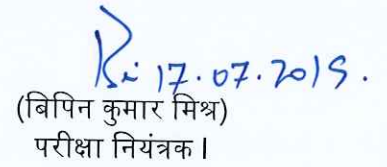 17.07.2019.
(बिपिन कुमार मिश्र)
परीक्षा नियंत्रक।